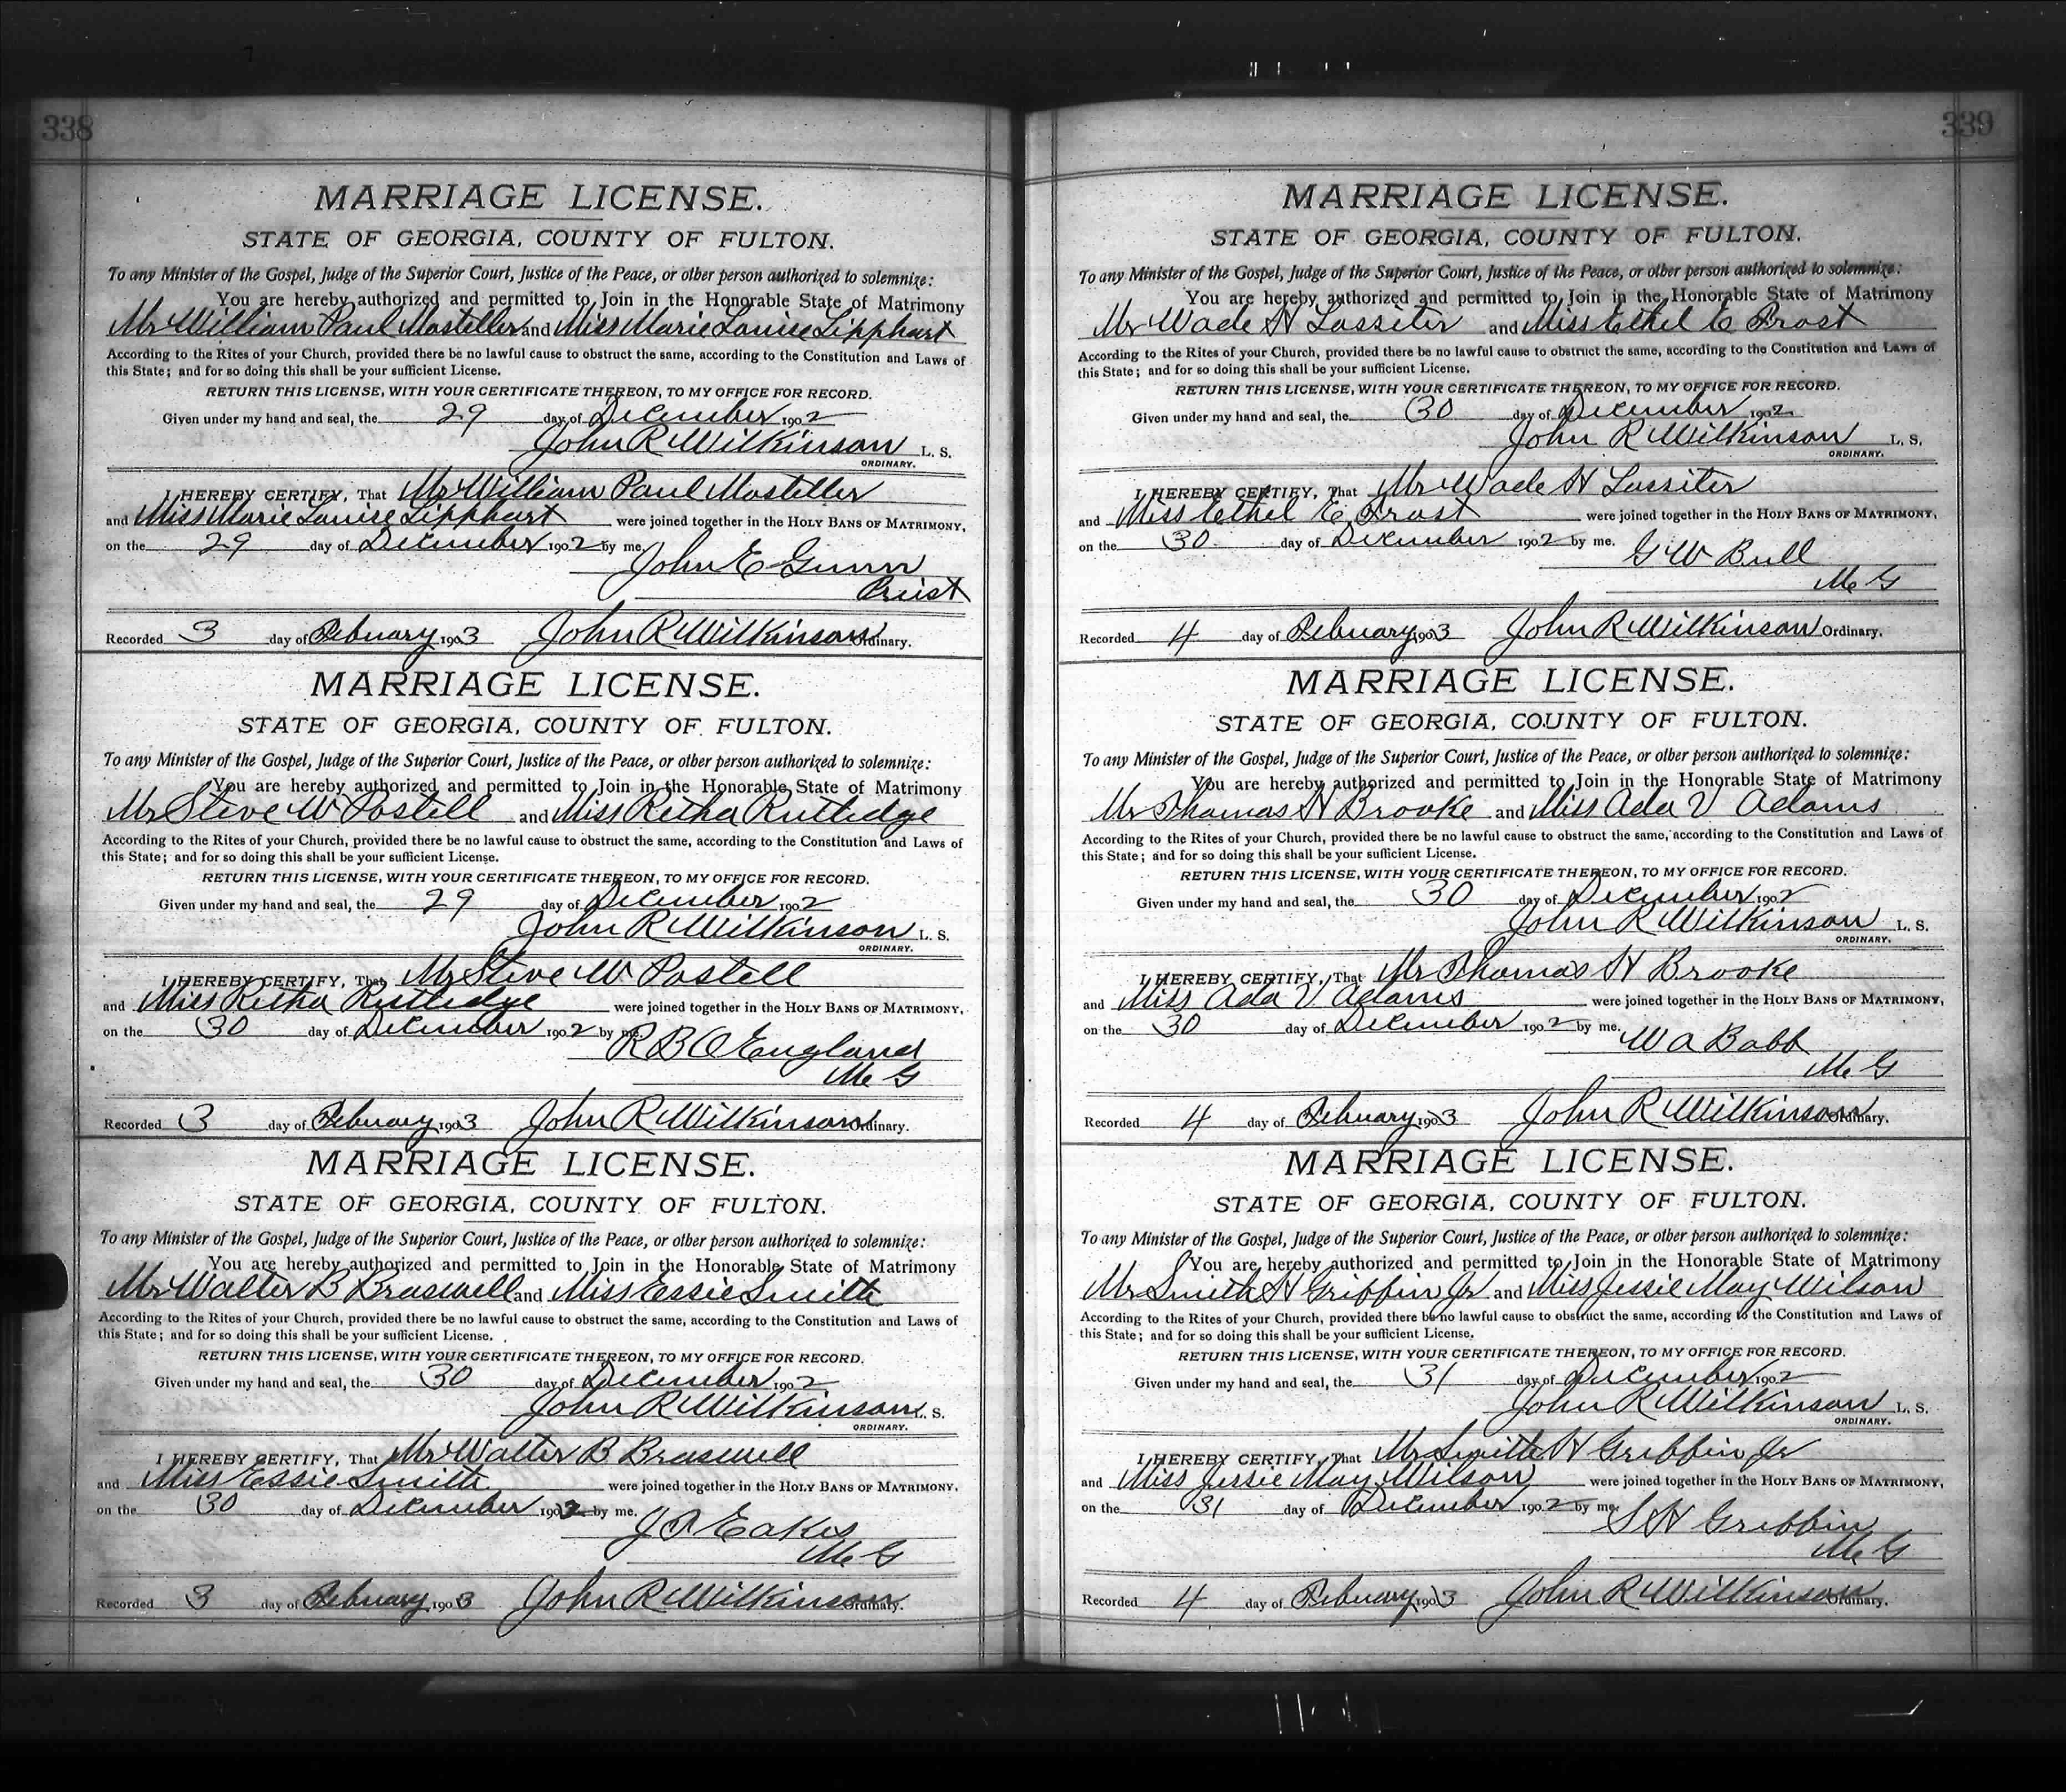 338
MARRIAGE LICENSE.
STATE OF GEORGIA, COUNTY OF FULTON.
To any Minister of the Gospel, Judge of the Superior Court, Justice of the Peace, or other person authorized to solemnize:
You are hereby authorized and permitted to Join in the Honorable State of Matrimony
Mr William Paul Mosteller and Miss Marie Louise Lipphart
According to the Rites of your Church, provided there be no lawful cause to obstruct the same, according to the Constitution and Laws of
this State; and for so doing this shall be your sufficient License.
RETURN THIS LICENSE, WITH YOUR CERTIFICATE THEREON, TO MY OFFICE FOR RECORD.
Given under my hand and seal, the 29 day of December 1902
John R Wilkinson L. S.
ORDINARY.
I HEREBY CERTIFY, That Mr William Paul Mosteller
and Miss Marie Louise Lipphart were joined together in the HOLY BANS OF MATRIMONY,
on the 29 day of December 1902 by me.
John E Gunn
Priest
Recorded 3 day of February 1903 John R Wilkinson Ordinary.
MARRIAGE LICENSE.
STATE OF GEORGIA, COUNTY OF FULTON.
To any Minister of the Gospel, Judge of the Superior Court, Justice of the Peace, or other person authorized to solemnize:
You are hereby authorized and permitted to Join in the Honorable State of Matrimony
Mr Steve W Postell and Miss Retha Rutledge
According to the Rites of your Church, provided there be no lawful cause to obstruct the same, according to the Constitution and Laws of
this State; and for so doing this shall be your sufficient License.
RETURN THIS LICENSE, WITH YOUR CERTIFICATE THEREON, TO MY OFFICE FOR RECORD.
Given under my hand and seal, the 29 day of December 1902
John R Wilkinson L. S.
ORDINARY.
I HEREBY CERTIFY, That Mr Steve W Postell
and Miss Retha Rutledge were joined together in the HOLY BANS OF MATRIMONY,
on the 30 day of December 1902 by me.
R B O England
M G
Recorded 3 day of February 1903 John R Wilkinson Ordinary.
MARRIAGE LICENSE.
STATE OF GEORGIA, COUNTY OF FULTON.
To any Minister of the Gospel, Judge of the Superior Court, Justice of the Peace, or other person authorized to solemnize:
You are hereby authorized and permitted to Join in the Honorable State of Matrimony
Mr Walter B Braswell and Miss Essie Smith
According to the Rites of your Church, provided there be no lawful cause to obstruct the same, according to the Constitution and Laws of
this State; and for so doing this shall be your sufficient License.
RETURN THIS LICENSE, WITH YOUR CERTIFICATE THEREON, TO MY OFFICE FOR RECORD.
Given under my hand and seal, the 30 day of December 1902
John R Wilkinson L. S.
ORDINARY.
I HEREBY CERTIFY, That Mr Walter B Braswell
and Miss Essie Smith were joined together in the HOLY BANS OF MATRIMONY,
on the 30 day of December 1902 by me.
Eakes
M G
Recorded 3 day of February 1903 John R Wilkinson Ordinary.
339
MARRIAGE LICENSE.
STATE OF GEORGIA, COUNTY OF FULTON.
To any Minister of the Gospel, Judge of the Superior Court, Justice of the Peace, or other person authorized to solemnize:
You are hereby authorized and permitted to Join in the Honorable State of Matrimony
Mr Wade H Lassiter and Miss Ethel E Frost
According to the Rites of your Church, provided there be no lawful cause to obstruct the same, according to the Constitution and Laws of
this State; and for so doing this shall be your sufficient License.
RETURN THIS LICENSE, WITH YOUR CERTIFICATE THEREON, TO MY OFFICE FOR RECORD.
Given under my hand and seal, the 30 day of December 1902
John R Wilkinson L. S.
ORDINARY.
I HEREBY CERTIFY, That Mr Wade H Lassiter
and Miss Ethel E Frost were joined together in the HOLY BANS OF MATRIMONY,
on the 30 day of December 1902 by me.
G W Bull
M G
Recorded 4 day of February 1903 John R Wilkinson Ordinary.
MARRIAGE LICENSE.
STATE OF GEORGIA, COUNTY OF FULTON.
To any Minister of the Gospel, Judge of the Superior Court, Justice of the Peace, or other person authorized to solemnize:
You are hereby authorized and permitted to Join in the Honorable State of Matrimony
Mr Thomas H Brooke and Miss Ada V Adams
According to the Rites of your Church, provided there be no lawful cause to obstruct the same, according to the Constitution and Laws of
this State; and for so doing this shall be your sufficient License.
RETURN THIS LICENSE, WITH YOUR CERTIFICATE THEREON, TO MY OFFICE FOR RECORD.
Given under my hand and seal, the 30 day of December 1902
John R Wilkinson L. S.
ORDINARY.
I HEREBY CERTIFY, That Mr Thomas H Brooke
and Miss Ada V Adams were joined together in the HOLY BANS OF MATRIMONY,
on the 30 day of December 1902 by me.
W A Babb
M G
Recorded 4 day of February 1903 John R Wilkinson Ordinary.
MARRIAGE LICENSE.
STATE OF GEORGIA, COUNTY OF FULTON.
To any Minister of the Gospel, Judge of the Superior Court, Justice of the Peace, or other person authorized to solemnize:
You are hereby authorized and permitted to Join in the Honorable State of Matrimony
Mr Smith H Griffin Jr and Miss Jessie May Wilson
According to the Rites of your Church, provided there be no lawful cause to obstruct the same, according to the Constitution and Laws of
this State; and for so doing this shall be your sufficient License.
RETURN THIS LICENSE, WITH YOUR CERTIFICATE THEREON, TO MY OFFICE FOR RECORD.
Given under my hand and seal, the 31 day of December 1902
John R Wilkinson L. S.
ORDINARY.
I HEREBY CERTIFY, That Mr Smith H Griffin Jr
and Miss Jessie May Wilson were joined together in the HOLY BANS OF MATRIMONY,
on the 31 day of December 1902 by me.
S H Griffin
M G
Recorded 4 day of February 1903 John R Wilkinson Ordinary.